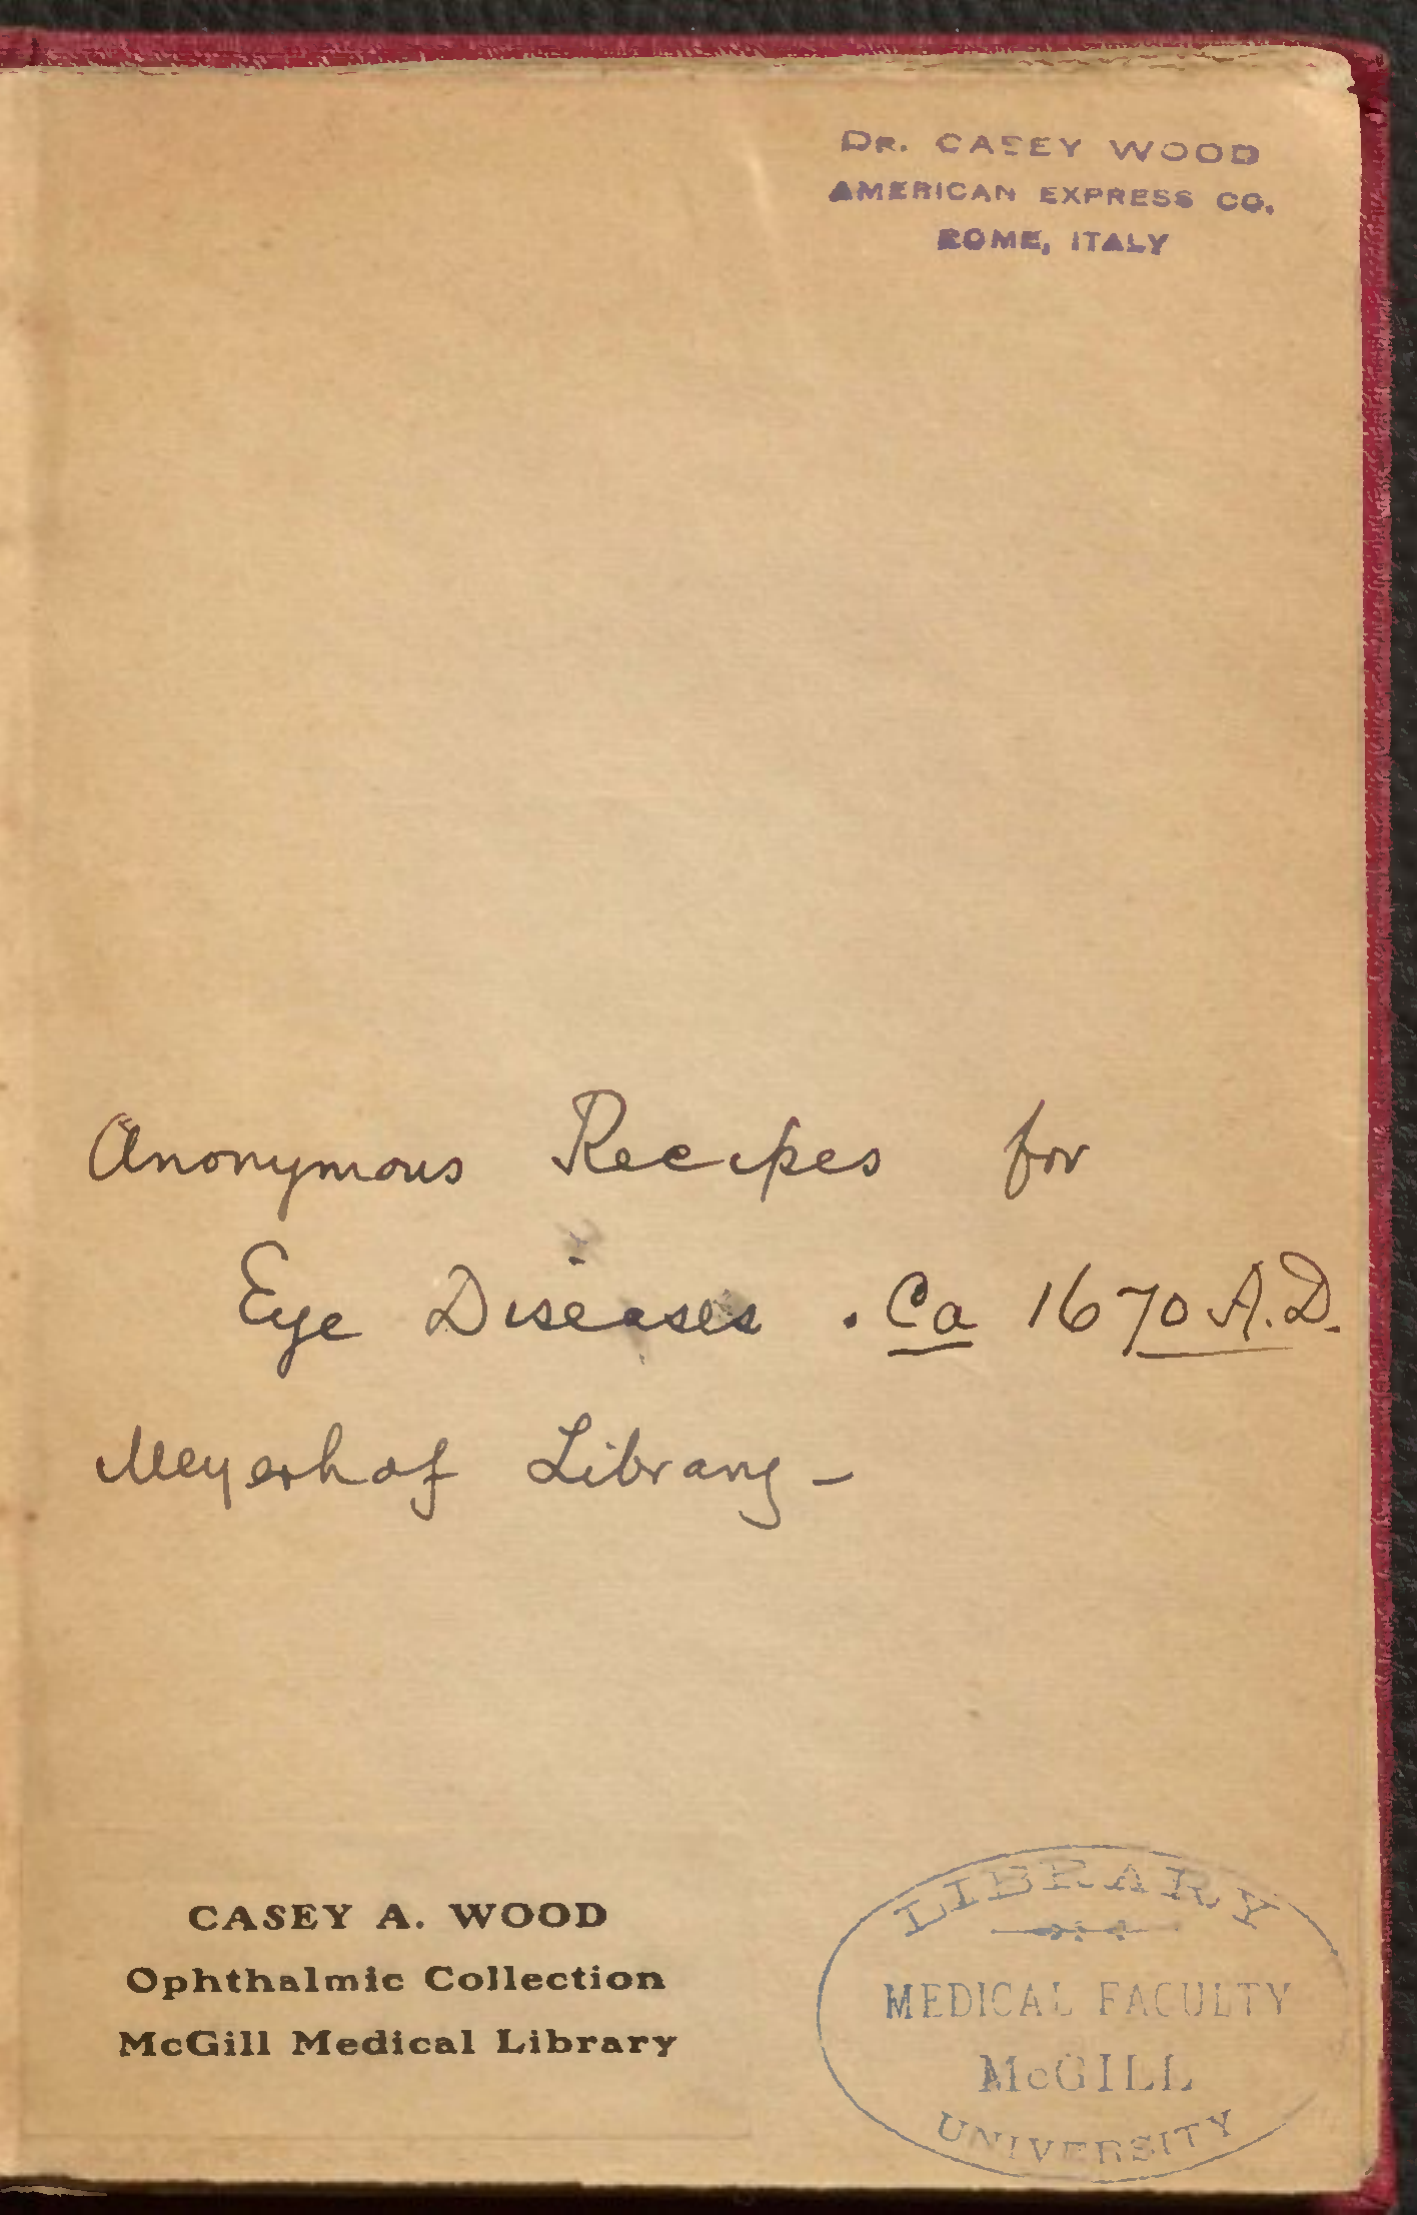 DR. CASEY WOOD
AMERICAN EXPRESS CO.
ROME, ITALY
Anonymous Recipes for
Eye Diseases . Ca 1670 A.D.
Meyerhof Library -
CASEY A. WOOD
Ophthalmic Collection
McGill Medical Library
LIBRARY
MEDICAL FACULTY
McGILL
UNIVERSITY